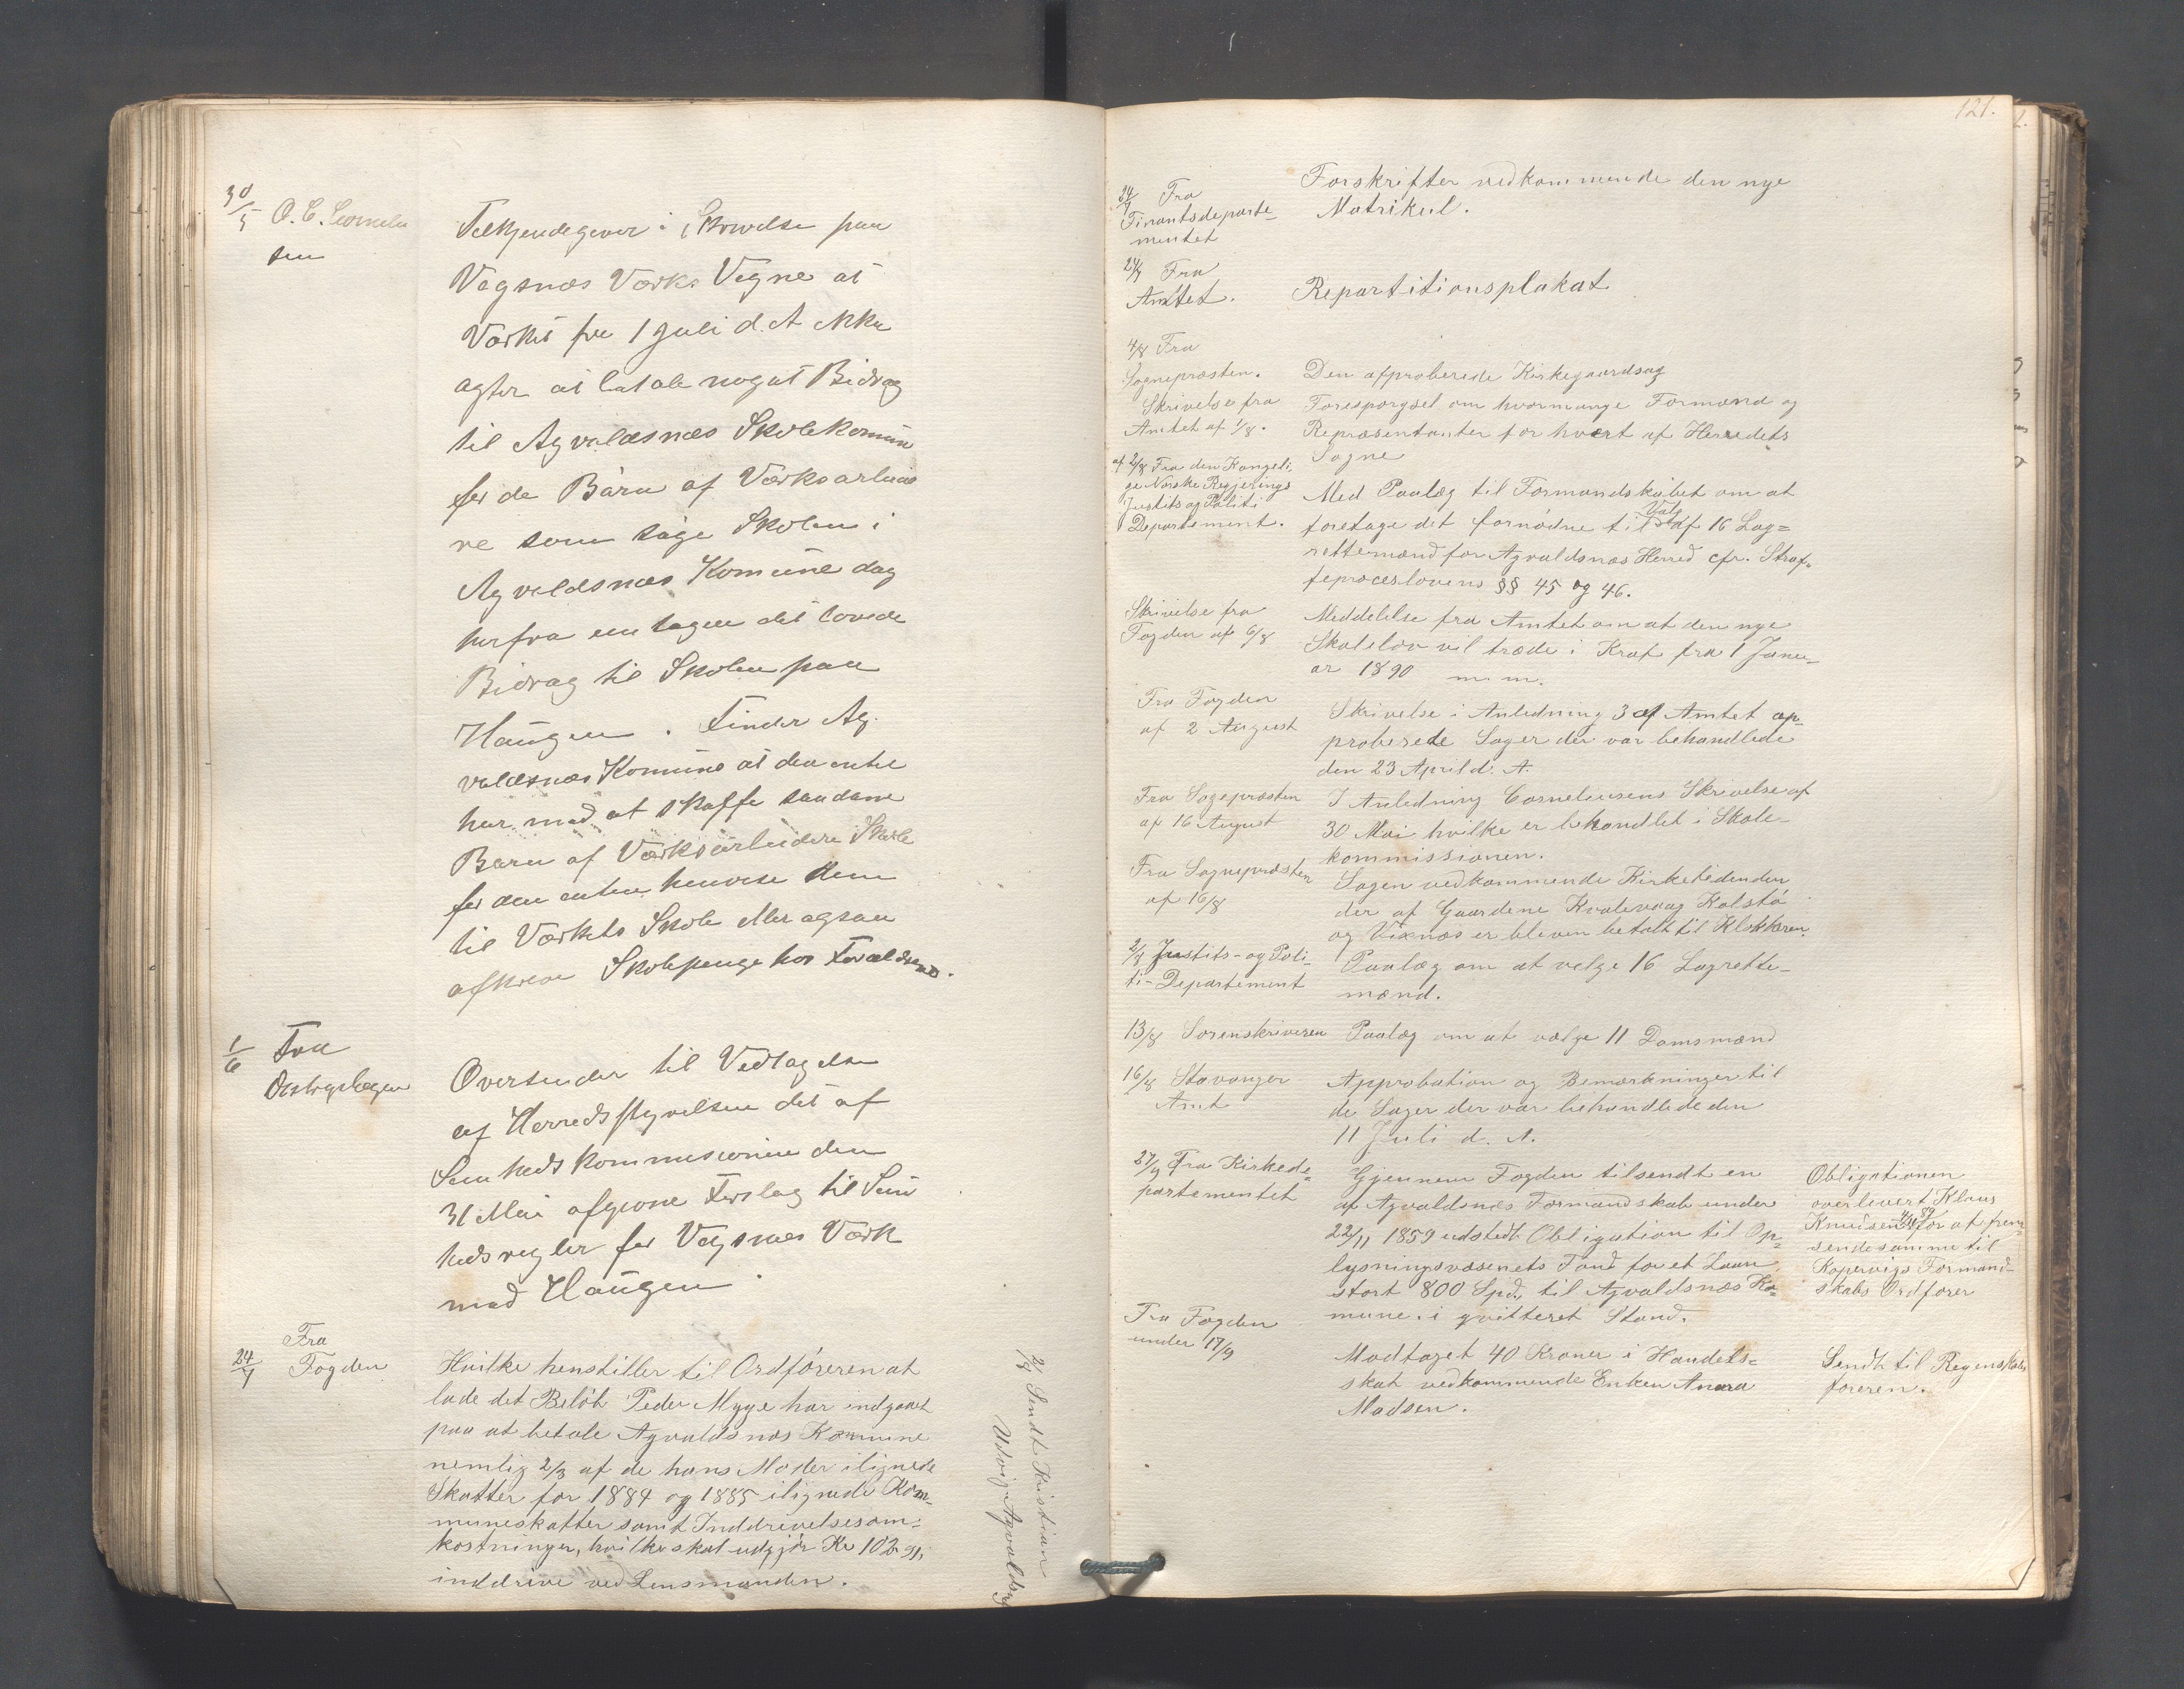 30/5 O. C. Cornelu
sen
Tilkjendegiver i Skrivelse paa
Vigsnæs Værks Vegne at
Værket fra 1 Juli d. A ikke
agter at betale noget Bidrag
til Agvaldsnes Skolekomun
for de Børn af Værksarbeid
re som søge Skolen i
Agvaldsnes Komune dog
herfra undtagen det lovede
Bidrag til Skolen paa
Haugen. Finder Ag-
valdsnæs Komune at den intet
har med at skaffe saadane
Børn af Værksarbeidere Skole
før den enten henvise dem
til Værkets Skole eller ogsaa
afkræve Skolepenge hos Forældrene.
1/6 Fra
Distrgslægen
Oversender til Vedtagelse
af Herredsstyrelsen det af
Sunheds kommissionen den
31 Mai afgivne Forslag til Sun
hedsregler for Vigsnæs Værk
med Haugen.
24/7 Fra
Fogden
Hvilke henstiller til Ordføreren at
lade det Beløb Peder Myge har indgaaet
paa at betale Agvaldsnæs Komune
nemlig 2/3 af de hans Moder ilignede
Skatter for 1884 og 1885 ilignede Kom-
muneskatter samt Inddrivelsesom-
kostninger, hvilke skal udgjør Kr 102.91,
inddrive ved Lensmanden.
2/8 Sendt Kristian
Utvig Agvaldsn
121.
24/7 Fra
Finantsdeparte-
mentet
Forskrifter vedkommende den nye
Matrikul.
24/7 Fra
Amtet.
Repartitionsplakat
4/8 Fra
Sognepræsten.
Den afproberede Kirkegaardsag
Skrivelse fra
Amtet af 1/8.
Forespørgsel om hvormange Formænd og
Repræsentanter for hvert af Herredets
Sogne
af 2/8 Fra den Kongeli-
ge Norske Regjerings
Justits og Politi
Departement.
Med Paalæg til Formandskabet om at
foretage det fornødne til Valg af 16 Lag=
rettemænd for Agvaldsnæs Herred cfr. Straf-
feproceslovens §§ 45 og 46.
Skrivelse fra
Fogden af 6/8
Meddelelse fra Amtet om at den nye
Skolelov vil træde i Kraf fra 1 Janu-
ar 1890 m. m.
Fra Fogden
af 2 August
Skrivelse i Anledning 3 af Amtet ap-
proberede Sager der var behandlede
den 23 April d. A.
Fra Sogepræsten
af 16 August
I Anledning Corneliusens Skrivelse af
30 Mai hvilke er behandlet i Skole-
kommissionen.
Fra Sognepræsten
af 16/8
Sagen vedkommende Kirketidenden
der af Gaardene Kvalevaag Kolstø
og Vixnæs er bleven betalt til Klokkeren.
2/8 Justits- og Poli-
ti- Departement
Paalæg om at velge 16 Lagrette-
mænd.
13/8 Sorenskriveren
Paalæg om at vælge 11 Domsmænd
16/8 Stavanger
Amt
Approbation og Bemærkninger til
de Sager der var behandlede den
11 Juli d. A.
27/9 Fra Kirkede-
partementet
Gjennem Fogden tilsendt en
af Agvaldsnæs Formandskab under
22/11 1859 udstedt Obligation til Op-
lysningsvæsenets Fond for et Laan
stort 800 Spd, til Agvaldsnæs Ko-
mune. i qvitteret Stand.
Obligationen
overlevert Klaus
Knudsen 4/11 89 for at frem-
sende samme til
Kopervigs Formand-
skabs Ordfører
Fra Fogden
under 17/9
Modtaget 40 Kroner i Handels=
skat vedkommende Enken Anna
Madsen.
Sendt til Regenskabs
føreren.